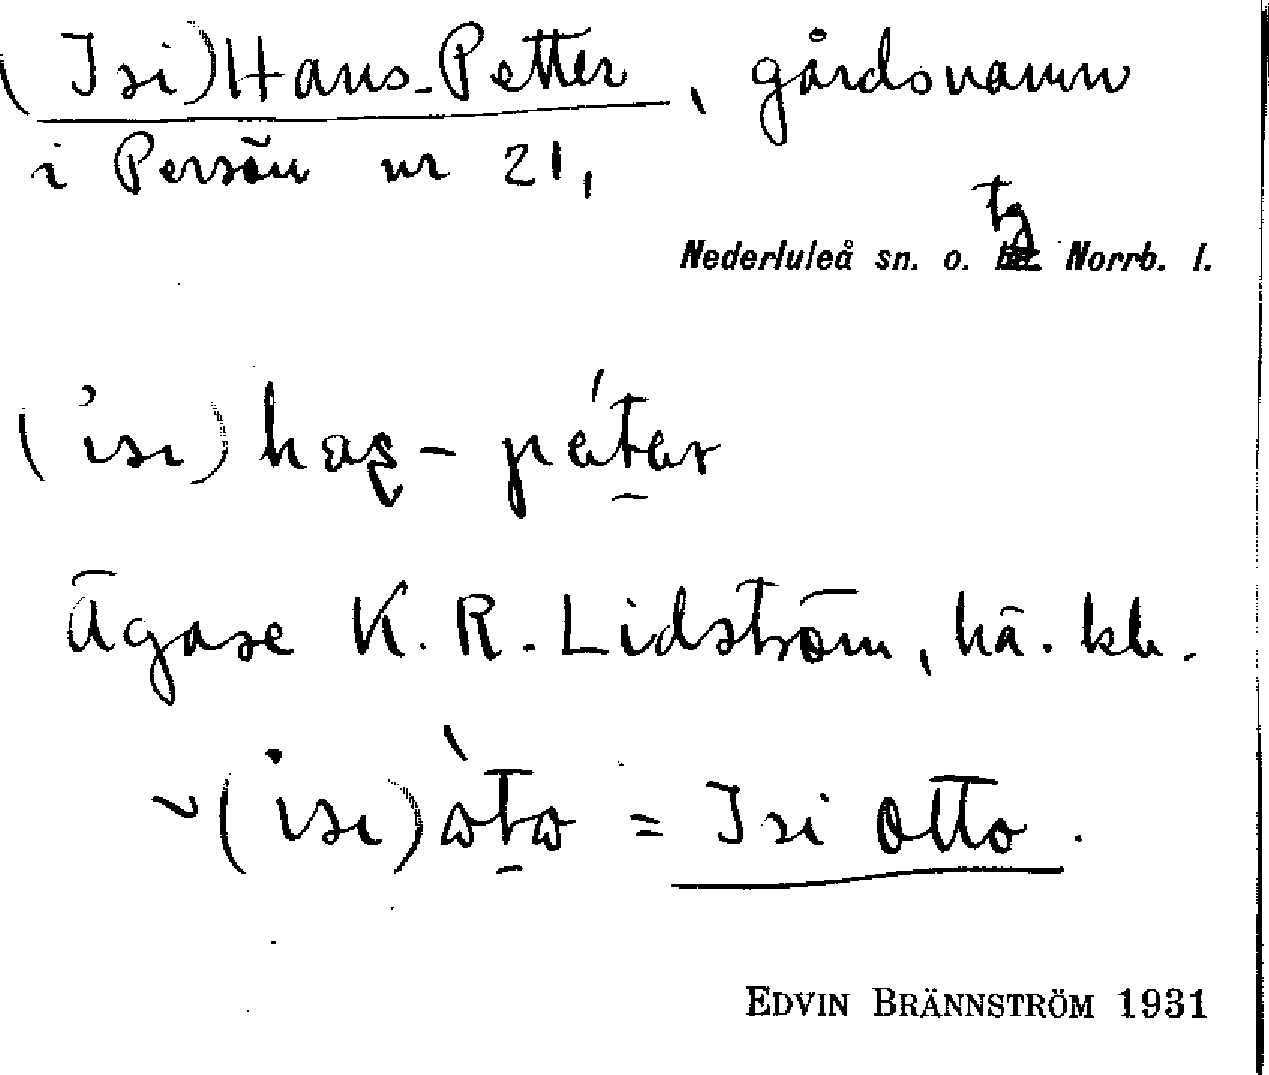 (Isi)Hans-Petter, gårdsnamn
i Persön nr 21,
Nederluleå sn. o. tg Norrb. l.
(ise) has-pétar
Ägare K. R. Lidström, hä. kb.
~(ise)òto = Isi Otto.
EDVIN BRÄNNSTRÖM 1931